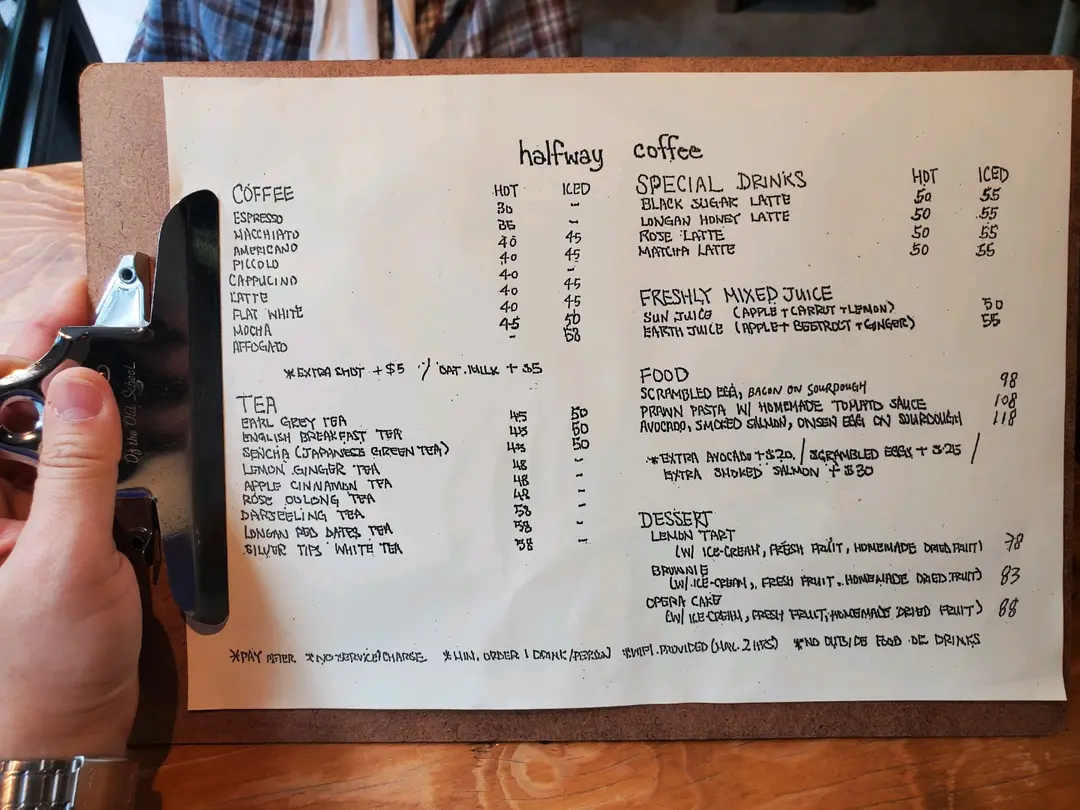 halfway coffee
COFFEE HOT ICED
ESPRESSO 30 -
MACCHIATO 35
AMERICANO 40 45
PICCOLO 40 45
CAPPUCINO 40 -
LATTE 40 45
FLAT WHITE 40 45
MOCHA 45 50
AFFOGATO - 58
*EXTRA SHOT +$5 / OAT MILK +$5
TEA
EARL GREY TEA 45 50
ENGLISH BREAKFAST TEA 45 50
SENCHA (JAPANESE GREEN TEA) 45 50
LEMON GINGER TEA 48 -
APPLE CINNAMON TEA 48 -
ROSE OOLONG TEA 48 -
DARJEELING TEA 58 -
LONGAN RED DATES TEA 58 -
SILVER TIPS WHITE TEA 58 -
SPECIAL DRINKS HOT ICED
BLACK SUGAR LATTE 50 55
LONGAN HONEY LATTE 50 55
ROSE LATTE 50 55
MATCHA LATTE 50 55
FRESHLY MIXED JUICE
SUN JUICE (APPLE + CARROT + LEMON) 50
EARTH JUICE (APPLE + BEETROOT + GINGER) 55
FOOD
SCRAMBLED EGG, BACON ON SOURDOUGH 98
PRAWN PASTA W/ HOMEMADE TOMATO SAUCE 108
AVOCADO, SMOKED SALMON, ONSEN EGG ON SOURDOUGH 118
*EXTRA AVOCADO +$20 / SCRAMBLED EGGS +$25 /
EXTRA SMOKED SALMON +$30
DESSERT
LEMON TART
(W/ ICE-CREAM, FRESH FRUIT, HOMEMADE DRIED FRUIT) 78
BROWNIE
(W/ ICE-CREAM, FRESH FRUIT, HOMEMADE DRIED FRUIT) 83
OPERA CAKE
(W/ ICE-CREAM, FRESH FRUIT, HOMEMADE DRIED FRUIT) 88
*PAY AFTER *NO SERVICE CHARGE *MIN. ORDER 1 DRINK/PERSON *WIFI PROVIDED (MAX. 2 HRS) *NO OUTSIDE FOOD OR DRINKS
Of the Old School